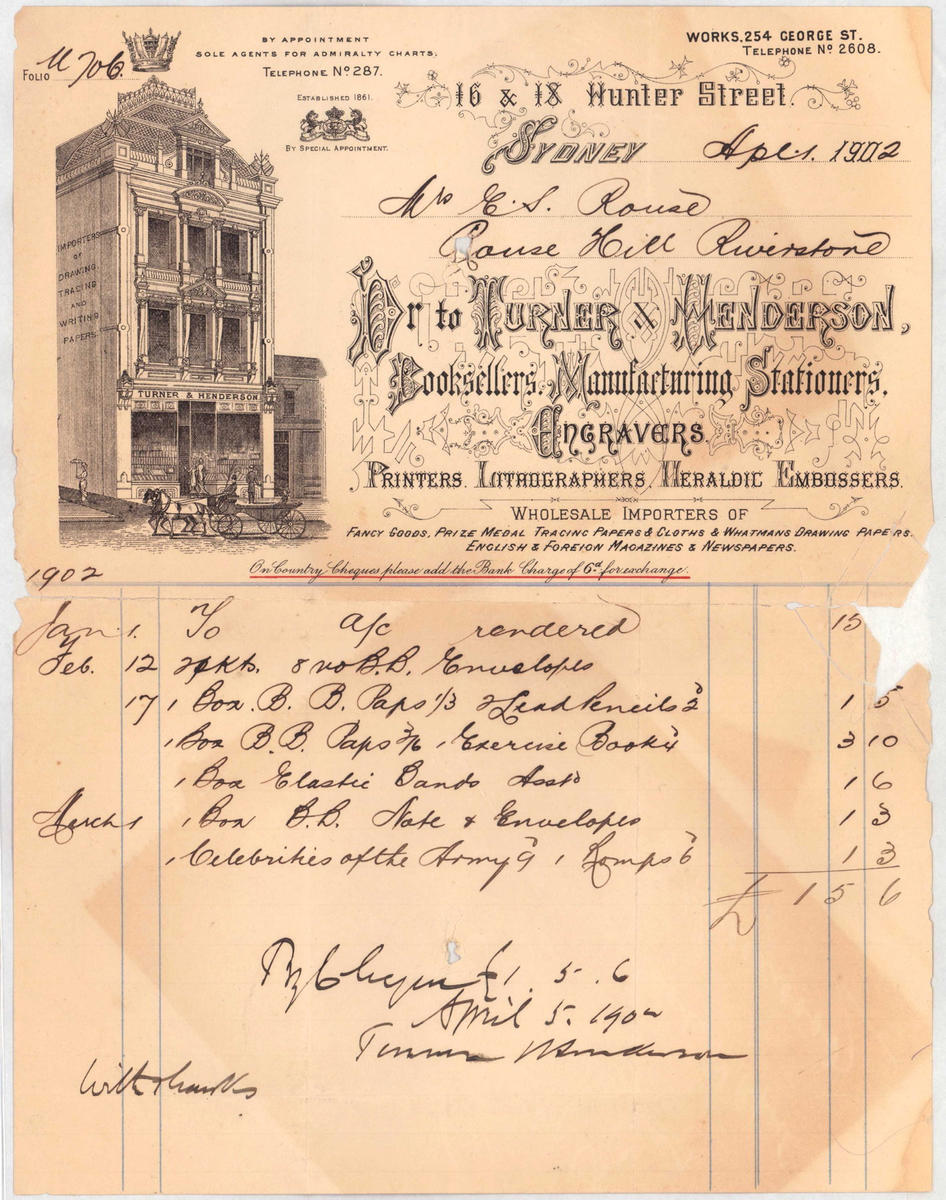 BY APPOINTMENT
SOLE AGENTS FOR ADMIRALTY CHARTS.
TELEPHONE Nº 287.
WORKS. 254 GEORGE ST.
TELEPHONE Nº 2608.
FOLIO 706.
ESTABLISHED 1861.
BY SPECIAL APPOINTMENT.
16 & 18 Hunter Street.
SYDNEY Apl. 1. 1902
Mrs E. S. Rouse
Rouse Hill Riverstone
IMPORTERS
OF
DRAWING,
TRACING
AND
WRITING
PAPERS.
TURNER & HENDERSON
Dr to TURNER & HENDERSON,
Booksellers, Manufacturing Stationers,
ENGRAVERS.
PRINTERS. LITHOGRAPHERS, HERALDIC EMBOSSERS.
WHOLESALE IMPORTERS OF
FANCY GOODS, PRIZE MEDAL TRACING PAPERS & CLOTHS & WHATMANS DRAWING PAPERS.
ENGLISH & FOREIGN MAGAZINES & NEWSPAPERS.
On Country Cheques please add the Bank Charge of 6d for exchange.
1902
Jany. 1. To a/c rendered 15
Feb. 12 2 pkts. 8vo B.B. Envelopes
17 1 Box B. B. Paps 1/3 2 Lead Pencils 2" 1 5
1 Box B.B. Paps 3/6 1 Exercise Book 4" 3 10
1 Box Elastic Bands Asstd 1 6
March 1 1 Box B.B. Note & Envelopes 1 3
1 Celebrities of the Army 9" 1 6" 1 3
£ 1 5 6
By Cheque £1. 5. 6
April 5. 1902
Turner & Henderson
With thanks